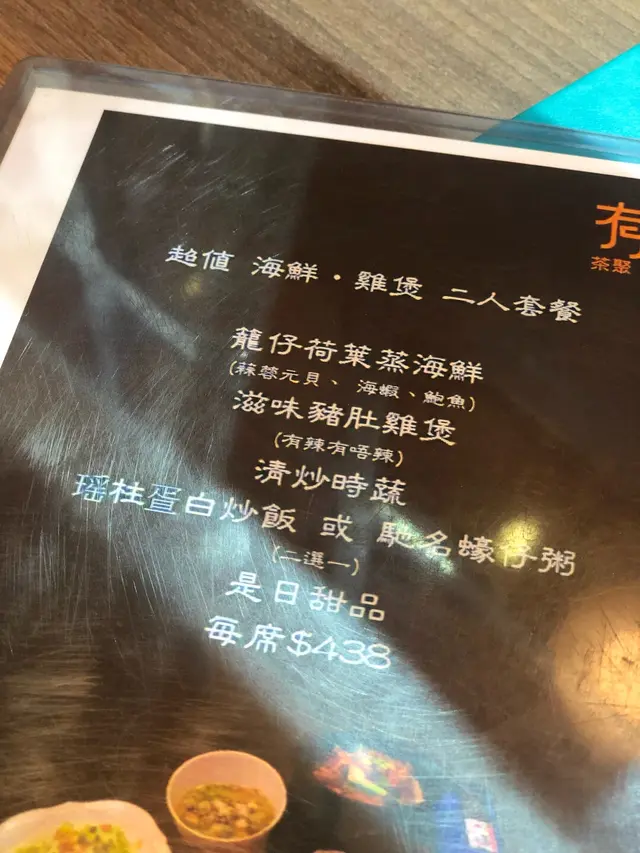 茶聚
超值 海鮮・雞煲 二人套餐
籠仔荷葉蒸海鮮
(蒜蓉元貝、海蝦、鮑魚)
滋味豬肚雞煲
(有辣有唔辣)
清炒時蔬
瑤柱蛋白炒飯 或 馳名蠔仔粥
(二選一)
是日甜品
每席$438